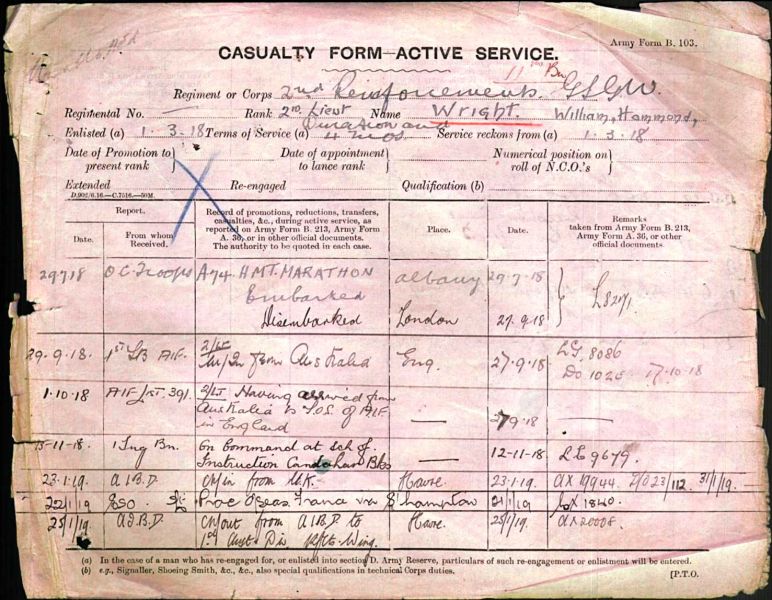 Army Form B. 103.
CASUALTY FORM—ACTIVE SERVICE.
11 Bn
Regiment or Corps 2nd Reinforcements. GSGW.
Regimental No. — Rank 2nd Lieut Name Wright. William, Hammond,
Enlisted (a) 1.3.18 Terms of Service (a) Duration and 4 mos Service reckons from (a) 1.3.18
Date of Promotion to present rank } Date of appointment to lance rank } Numerical position on roll of N.C.O.'s }
Extended Re-engaged Qualification (b)
D.902/6.16.—C.7516.—50M.
Report. Record of promotions, reductions, transfers, casualties, &c., during active service, as reported on Army Form B. 213, Army Form A. 36, or in other official documents. The authority to be quoted in each case. Place. Date. Remarks taken from Army Form B. 213, Army Form A. 36, or other official documents.
Date. From whom Received.
29.7.18 O C Troops A74 HMT. MARATHON
Embarked Albany 29.7.18
Disembarked London 27.9.18
29.9.18 1st T.B AIF. 2/Lt from Australia Eng. 27.9.18 8086
DO 102 17-10-18
1.10.18 AIF 391 2/Lt Having arrived from Australia is T.O.S. of AIF in England — 27.9.18 —
15-11-18. 1 Tng Bn. On Command at Scl of Instruction Candahar Bks — 12-11-18. 9679.
23.1.19. A I B D. in from U.K. Havre 23.1.19. AX 19944. 23/112 31/1/19.
22/1/19 Proc Oseas France via S'hampton 21/1/19 1840.
25/1/19. A I B D. out from A I B D to 1st Aust Div Rfts Wing. Havre. 25/1/19. AX 20008.
(a) In the case of a man who has re-engaged for, or enlisted into section D. Army Reserve, particulars of such re-engagement or enlistment will be entered.
(b) e.g., Signaller, Shoeing Smith, &c., &c., also special qualifications in technical Corps duties. [P.T.O.